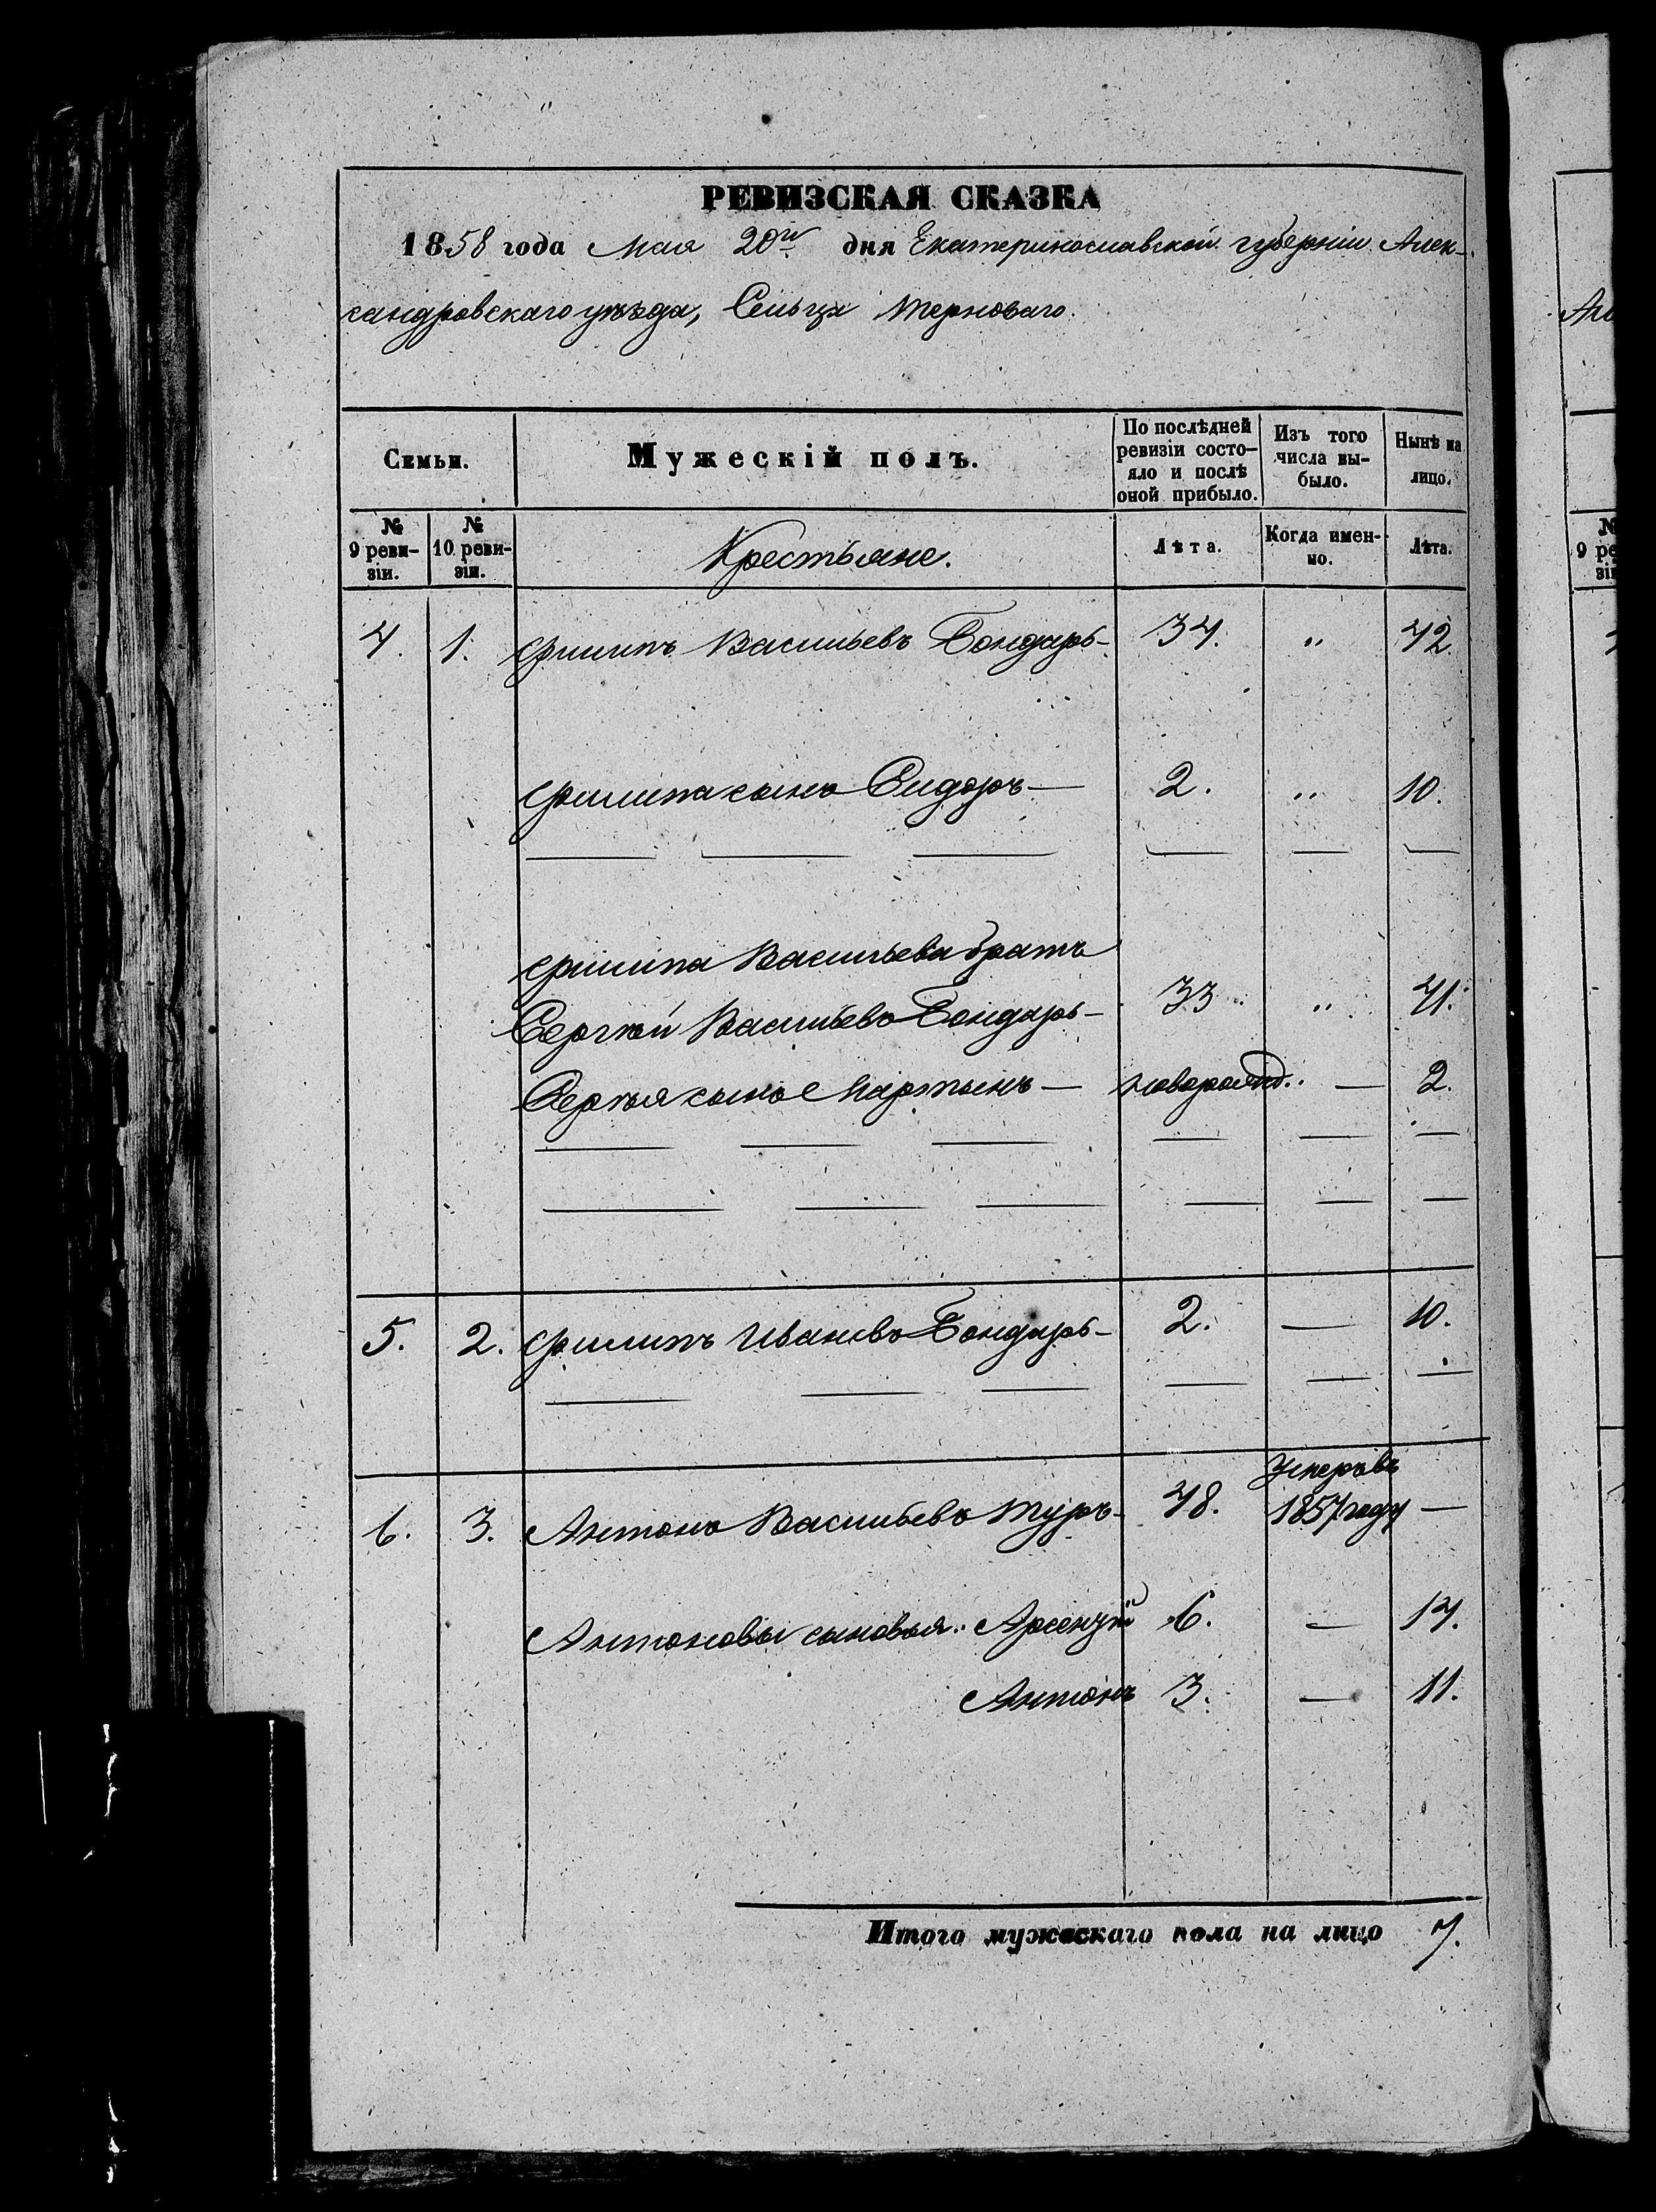 РЕВИЗСКАЯ СКАЗКА
1858 года Мая 20го дня Екатеринославской губерніи Алек-
сандровскаго уѣзда, Сельца Терноваго.
Семьи.
Мужескій полъ.
По послѣдней ревизіи состо-
яло и послѣ оной прибыло.
Изъ того числа вы-
было.
Нынѣ на лицо.
№ 9 реви-
зіи.
№ 10 реви-
зіи.
Крестьяне.
Лѣта.
Когда имен-
но.
Лѣта.
4. 1. Филипъ Васильевъ Бондарь- 34. " 42.
Филипа сынъ Сидоръ — 2. " 10.
Филипа Васильева братъ
Сергѣй Васильевъ Бондарь- 33 " 41.
Сергѣя сынъ Мартынъ — новорожд. — 2.
5. 2. Филипъ Ивановъ Бондарь- 2. — 10.
Умеръ въ
6. 3. Антонъ Васильевъ Туръ- 48. 1857 году —
Антоновы сыновья: Арсентій 6. — 14.
Антонъ 3. — 11.
Итого мужескаго пола на лицо 7.
№
9 ре
зіи